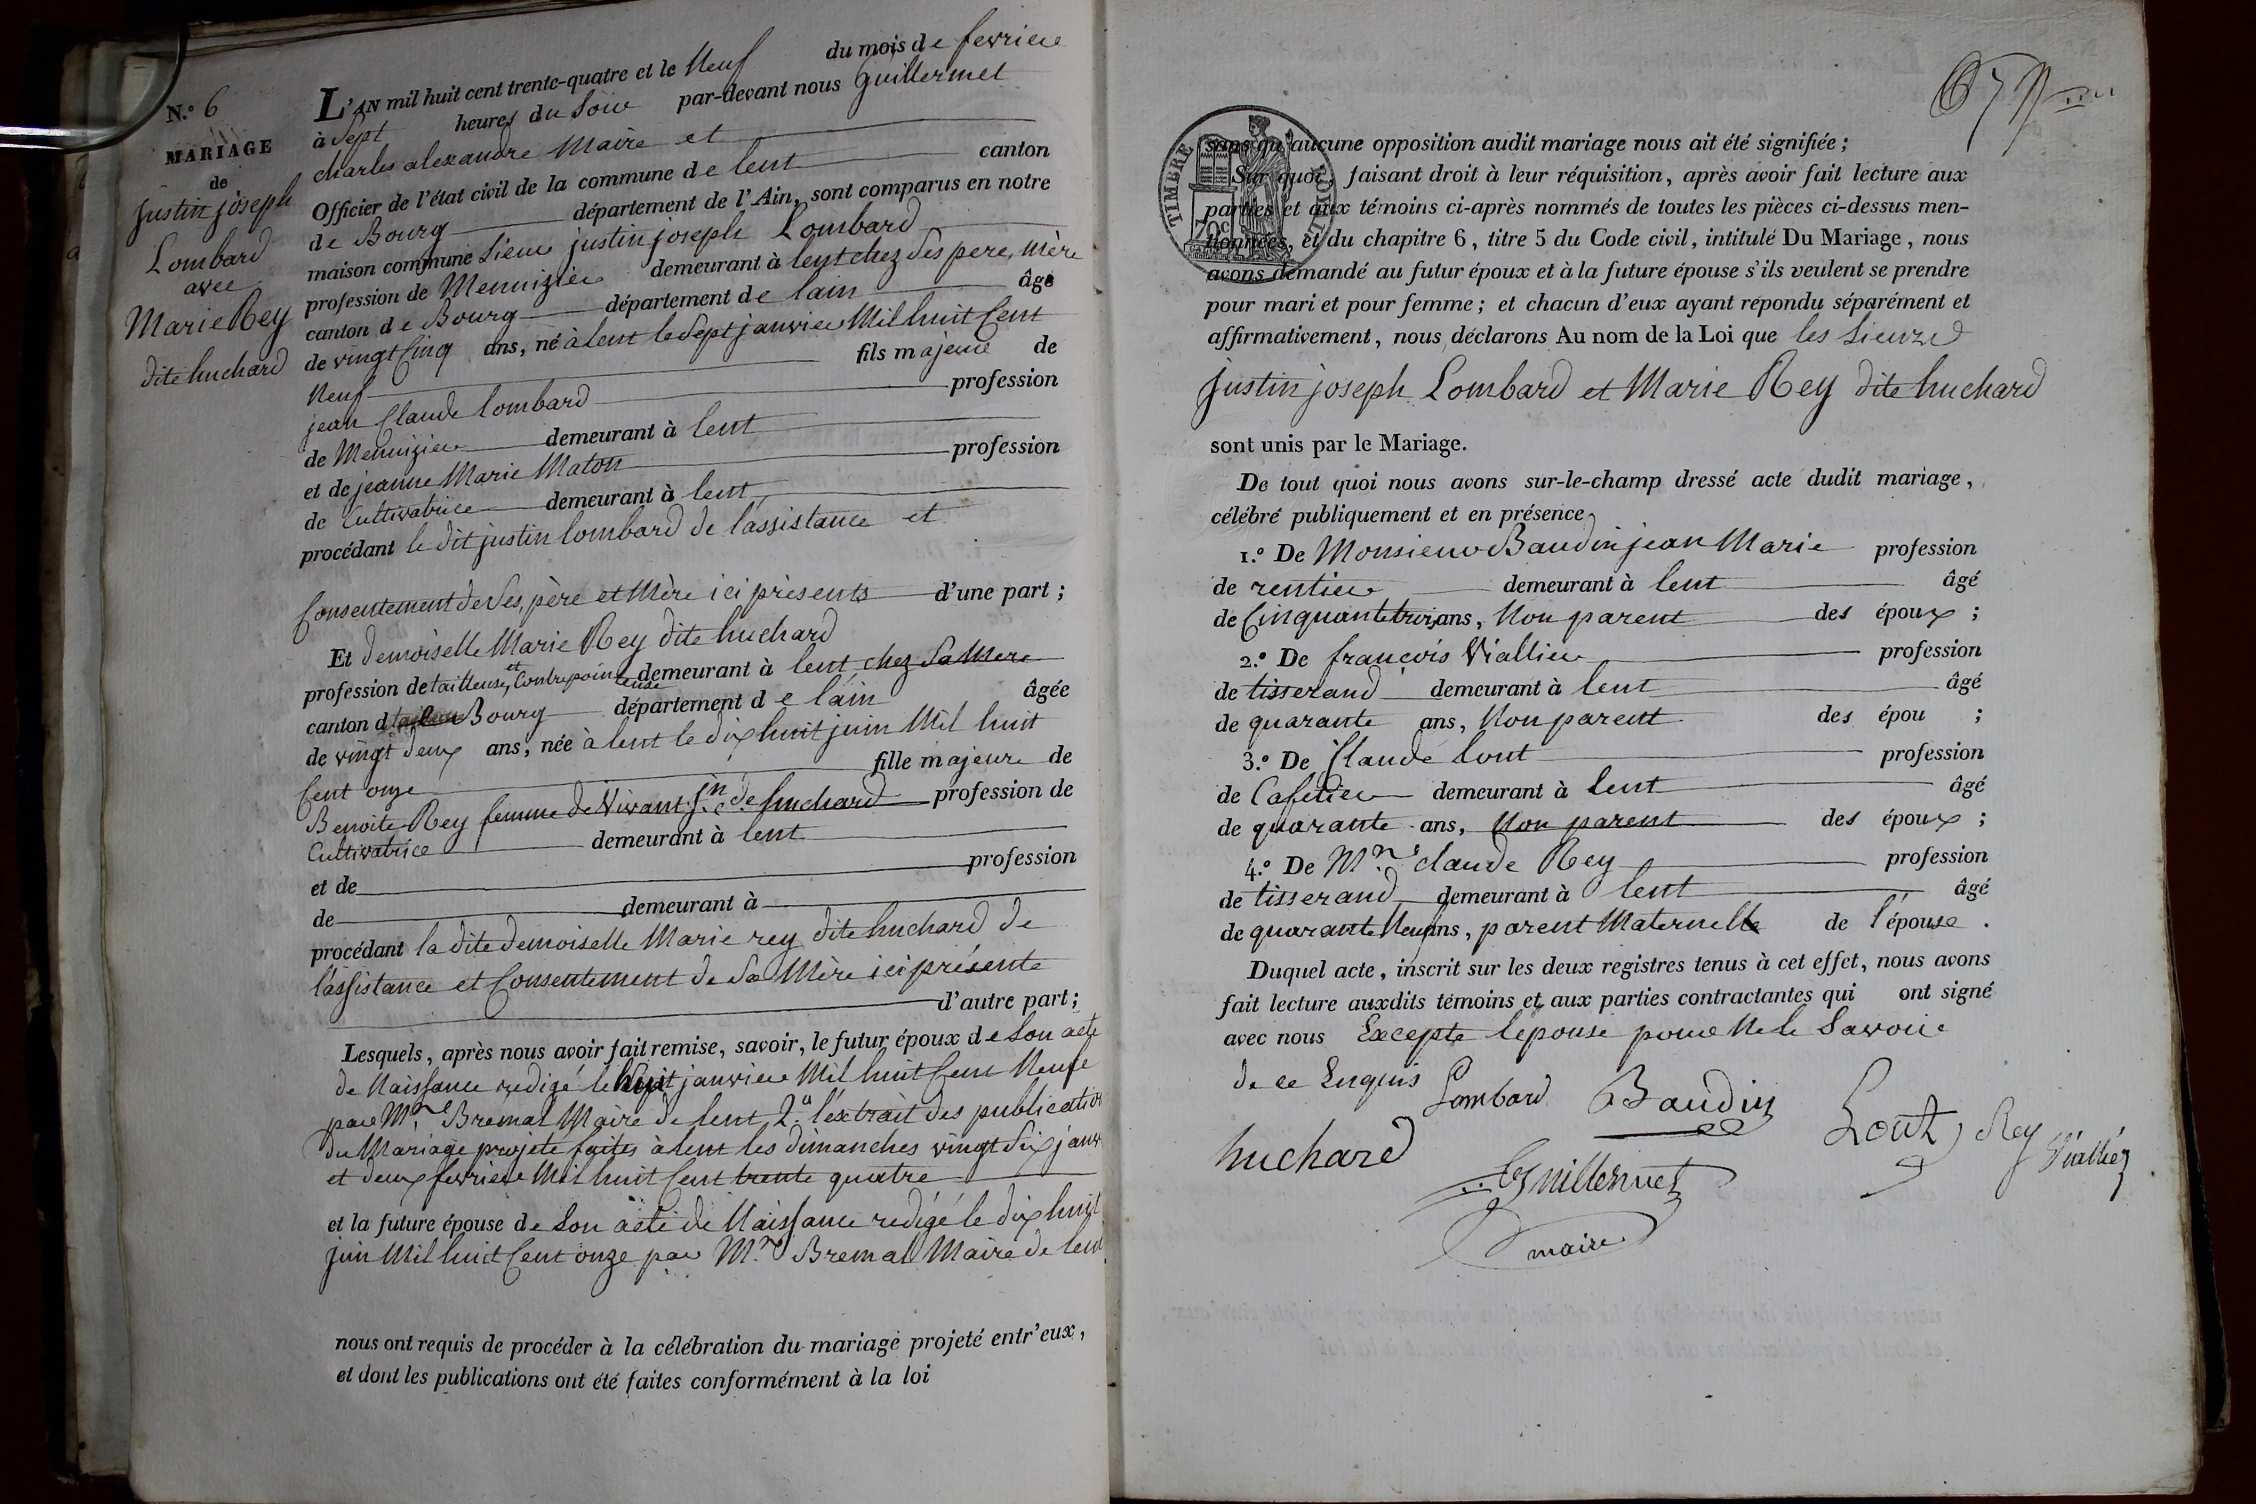 N.º 6
MARIAGE
de
justin joseph
Lombard
avec
Marie Rey
dite huchard
L'AN mil huit cent trente-quatre et le Neuf du mois de fevrier
à Sept heures du Soir par-devant nous Guillermet
charles alexandre Maire et
Officier de l'état civil de la commune de lent canton
de Bourg département de l'Ain, sont comparus en notre
maison commune Sieur justin joseph Lombard
profession de Menuizier demeurant à lent chez Ses pere, mère
canton de Bourg département de lain âgé
de vingt Cinq ans, né à lent le Sept janvier Mil huit Cent
Neuf fils majeur de
jean Claude lombard profession
de Menuizier demeurant à lent
et de jeanne Marie Maton profession
de Cultivatrice demeurant à lent
procédant le dit justin lombard de l'assistance et
Consentement de Ses, père et Mère ici présents d'une part ;
Et demoiselle Marie Rey dite huchard
profession de tailleuse, et Contrepointeuse demeurant à lent chez Sa Mère
canton d Bourg département de lain âgée
de vingt deux ans, née à lent le dix huit juin Mil huit
Cent onze fille majeure de
Benoite Rey femme de Vivant jn de huchard profession de
Cultivatrice demeurant à lent
et de profession
de demeurant à
procédant la dite demoiselle Marie rey dite huchard de
l'assistance et Consentement de Sa Mère ici présente
d'autre part ;
Lesquels, après nous avoir fait remise, savoir, le futur époux de Son acte
de Naissance redigé le janvier Mil huit Cent Neuf
par Mr. Bremal Maire de lent 2.º l'extrait des publication
du Mariage projeté faites à lent les dimanches vingt Six janv
et deux fevrier Mil huit Cent trente quatre
et la future épouse de Son acte de Naissance redigé le dix huit
juin Mil huit Cent onze par Mr. Bremal Maire de lent
nous ont requis de procéder à la célébration du mariage projeté entr'eux,
et dont les publications ont été faites conformément à la loi
TIMBRE ROYAL
70c
sans qu'aucune opposition audit mariage nous ait été signifiée ;
Sur quoi, faisant droit à leur réquisition, après avoir fait lecture aux
parties et aux témoins ci-après nommés de toutes les pièces ci-dessus men-
tionnées, et du chapitre 6, titre 5 du Code civil, intitulé Du Mariage, nous
avons demandé au futur époux et à la future épouse s'ils veulent se prendre
pour mari et pour femme ; et chacun d'eux ayant répondu séparément et
affirmativement, nous déclarons Au nom de la Loi que les Sieurs
justin joseph Lombard et Marie Rey dite huchard
sont unis par le Mariage.
De tout quoi nous avons sur-le-champ dressé acte dudit mariage,
célébré publiquement et en présence,
1.º De Monsieur Baudin jean Marie profession
de rentier demeurant à lent âgé
de Cinquante trois ans, Non parent des époux ;
2.º De françois Viallier profession
de tisserand demeurant à lent âgé
de quarante ans, Non parent des épou ;
3.º De Claude lout profession
de Cafetier demeurant à lent âgé
de quarante ans, Non parent des époux ;
4.º De Mr. claude Rey profession
de tisserand demeurant à lent âgé
de quarante Neuf ans, parent Maternelle de l'épouse .
Duquel acte, inscrit sur les deux registres tenus à cet effet, nous avons
fait lecture auxdits témoins et aux parties contractantes qui ont signé
avec nous Excepté lepouse pour Ne le Savoir
de ce Enquis Lombard Baudin
huchard Lout Rey Viallier
Guillermet
maire